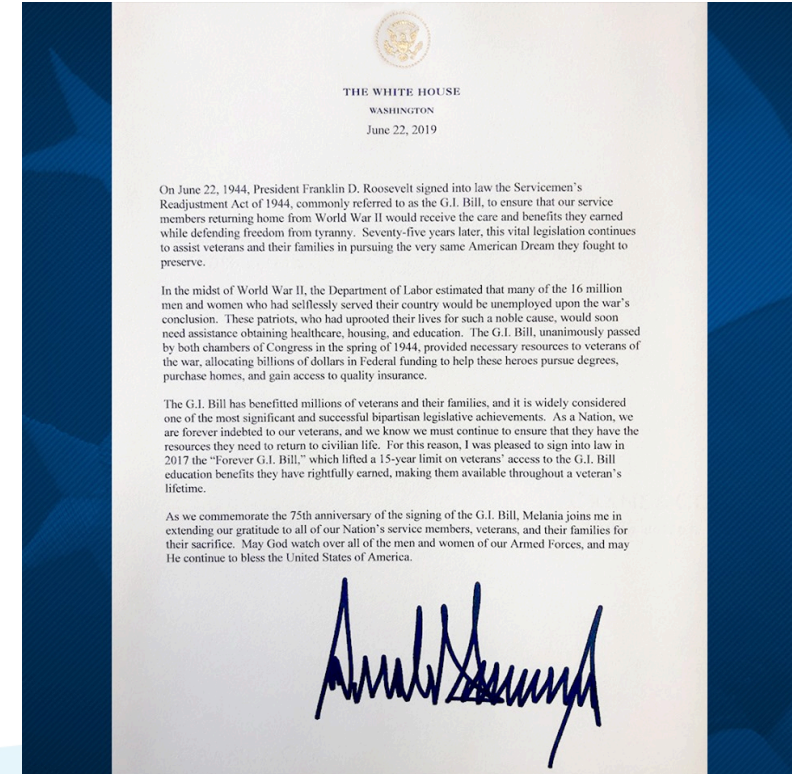 THE WHITE HOUSE
WASHINGTON
June 22, 2019
On June 22, 1944, President Franklin D. Roosevelt signed into law the Servicemen's
Readjustment Act of 1944, commonly referred to as the G.I. Bill, to ensure that our service
members returning home from World War II would receive the care and benefits they earned
while defending freedom from tyranny. Seventy-five years later, this vital legislation continues
to assist veterans and their families in pursuing the very same American Dream they fought to
preserve.
In the midst of World War II, the Department of Labor estimated that many of the 16 million
men and women who had selflessly served their country would be unemployed upon the war's
conclusion. These patriots, who had uprooted their lives for such a noble cause, would soon
need assistance obtaining healthcare, housing, and education. The G.I. Bill, unanimously passed
by both chambers of Congress in the spring of 1944, provided necessary resources to veterans of
the war, allocating billions of dollars in Federal funding to help these heroes pursue degrees,
purchase homes, and gain access to quality insurance.
The G.I. Bill has benefitted millions of veterans and their families, and it is widely considered
one of the most significant and successful bipartisan legislative achievements. As a Nation, we
are forever indebted to our veterans, and we know we must continue to ensure that they have the
resources they need to return to civilian life. For this reason, I was pleased to sign into law in
2017 the “Forever G.I. Bill,” which lifted a 15-year limit on veterans' access to the G.I. Bill
education benefits they have rightfully earned, making them available throughout a veteran's
lifetime.
As we commemorate the 75th anniversary of the signing of the G.I. Bill, Melania joins me in
extending our gratitude to all of our Nation's service members, veterans, and their families for
their sacrifice. May God watch over all of the men and women of our Armed Forces, and may
He continue to bless the United States of America.